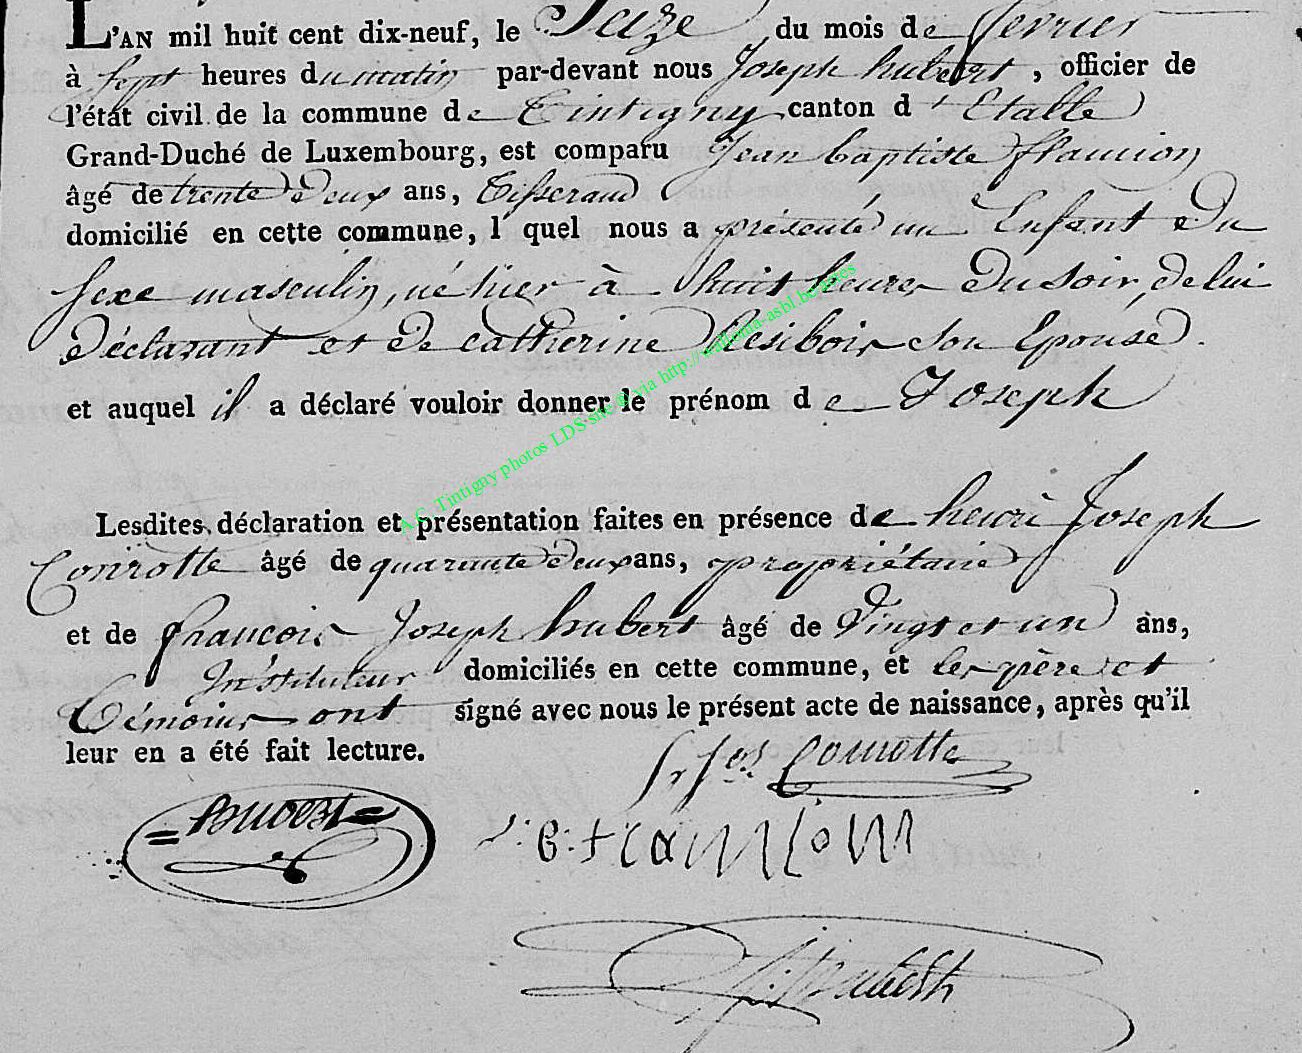 L'AN mil huit cent dix-neuf, le Seize du mois de fevrier
à sept heures du matin par-devant nous Joseph hubert, officier de
l'état civil de la commune de Tintigny canton d'Etalle
Grand-Duché de Luxembourg, est comparu Jean baptiste flamion
âgé de trente Deux ans, Tisserand
domicilié en cette commune, l quel nous a présenté un Enfant Du
sexe masculin, né hier à huit heures Du soir, de lui
Déclarant et De catherine Resibois son Epouse.
et auquel il a déclaré vouloir donner le prénom de Joseph
A.C. Tintigny photos LDS sne © via http://wallonia-asbl.be
Lesdites déclaration et présentation faites en présence de henri Joseph
Conrotte âgé de quarante Deux ans, propriétaire
et de francois Joseph hubert âgé de Vingt et un ans,
Instituteur domiciliés en cette commune, et les père et
Témoins ont signé avec nous le présent acte de naissance, après qu'il
leur en a été fait lecture.
Conrotte
J: B: flamion
Hubert